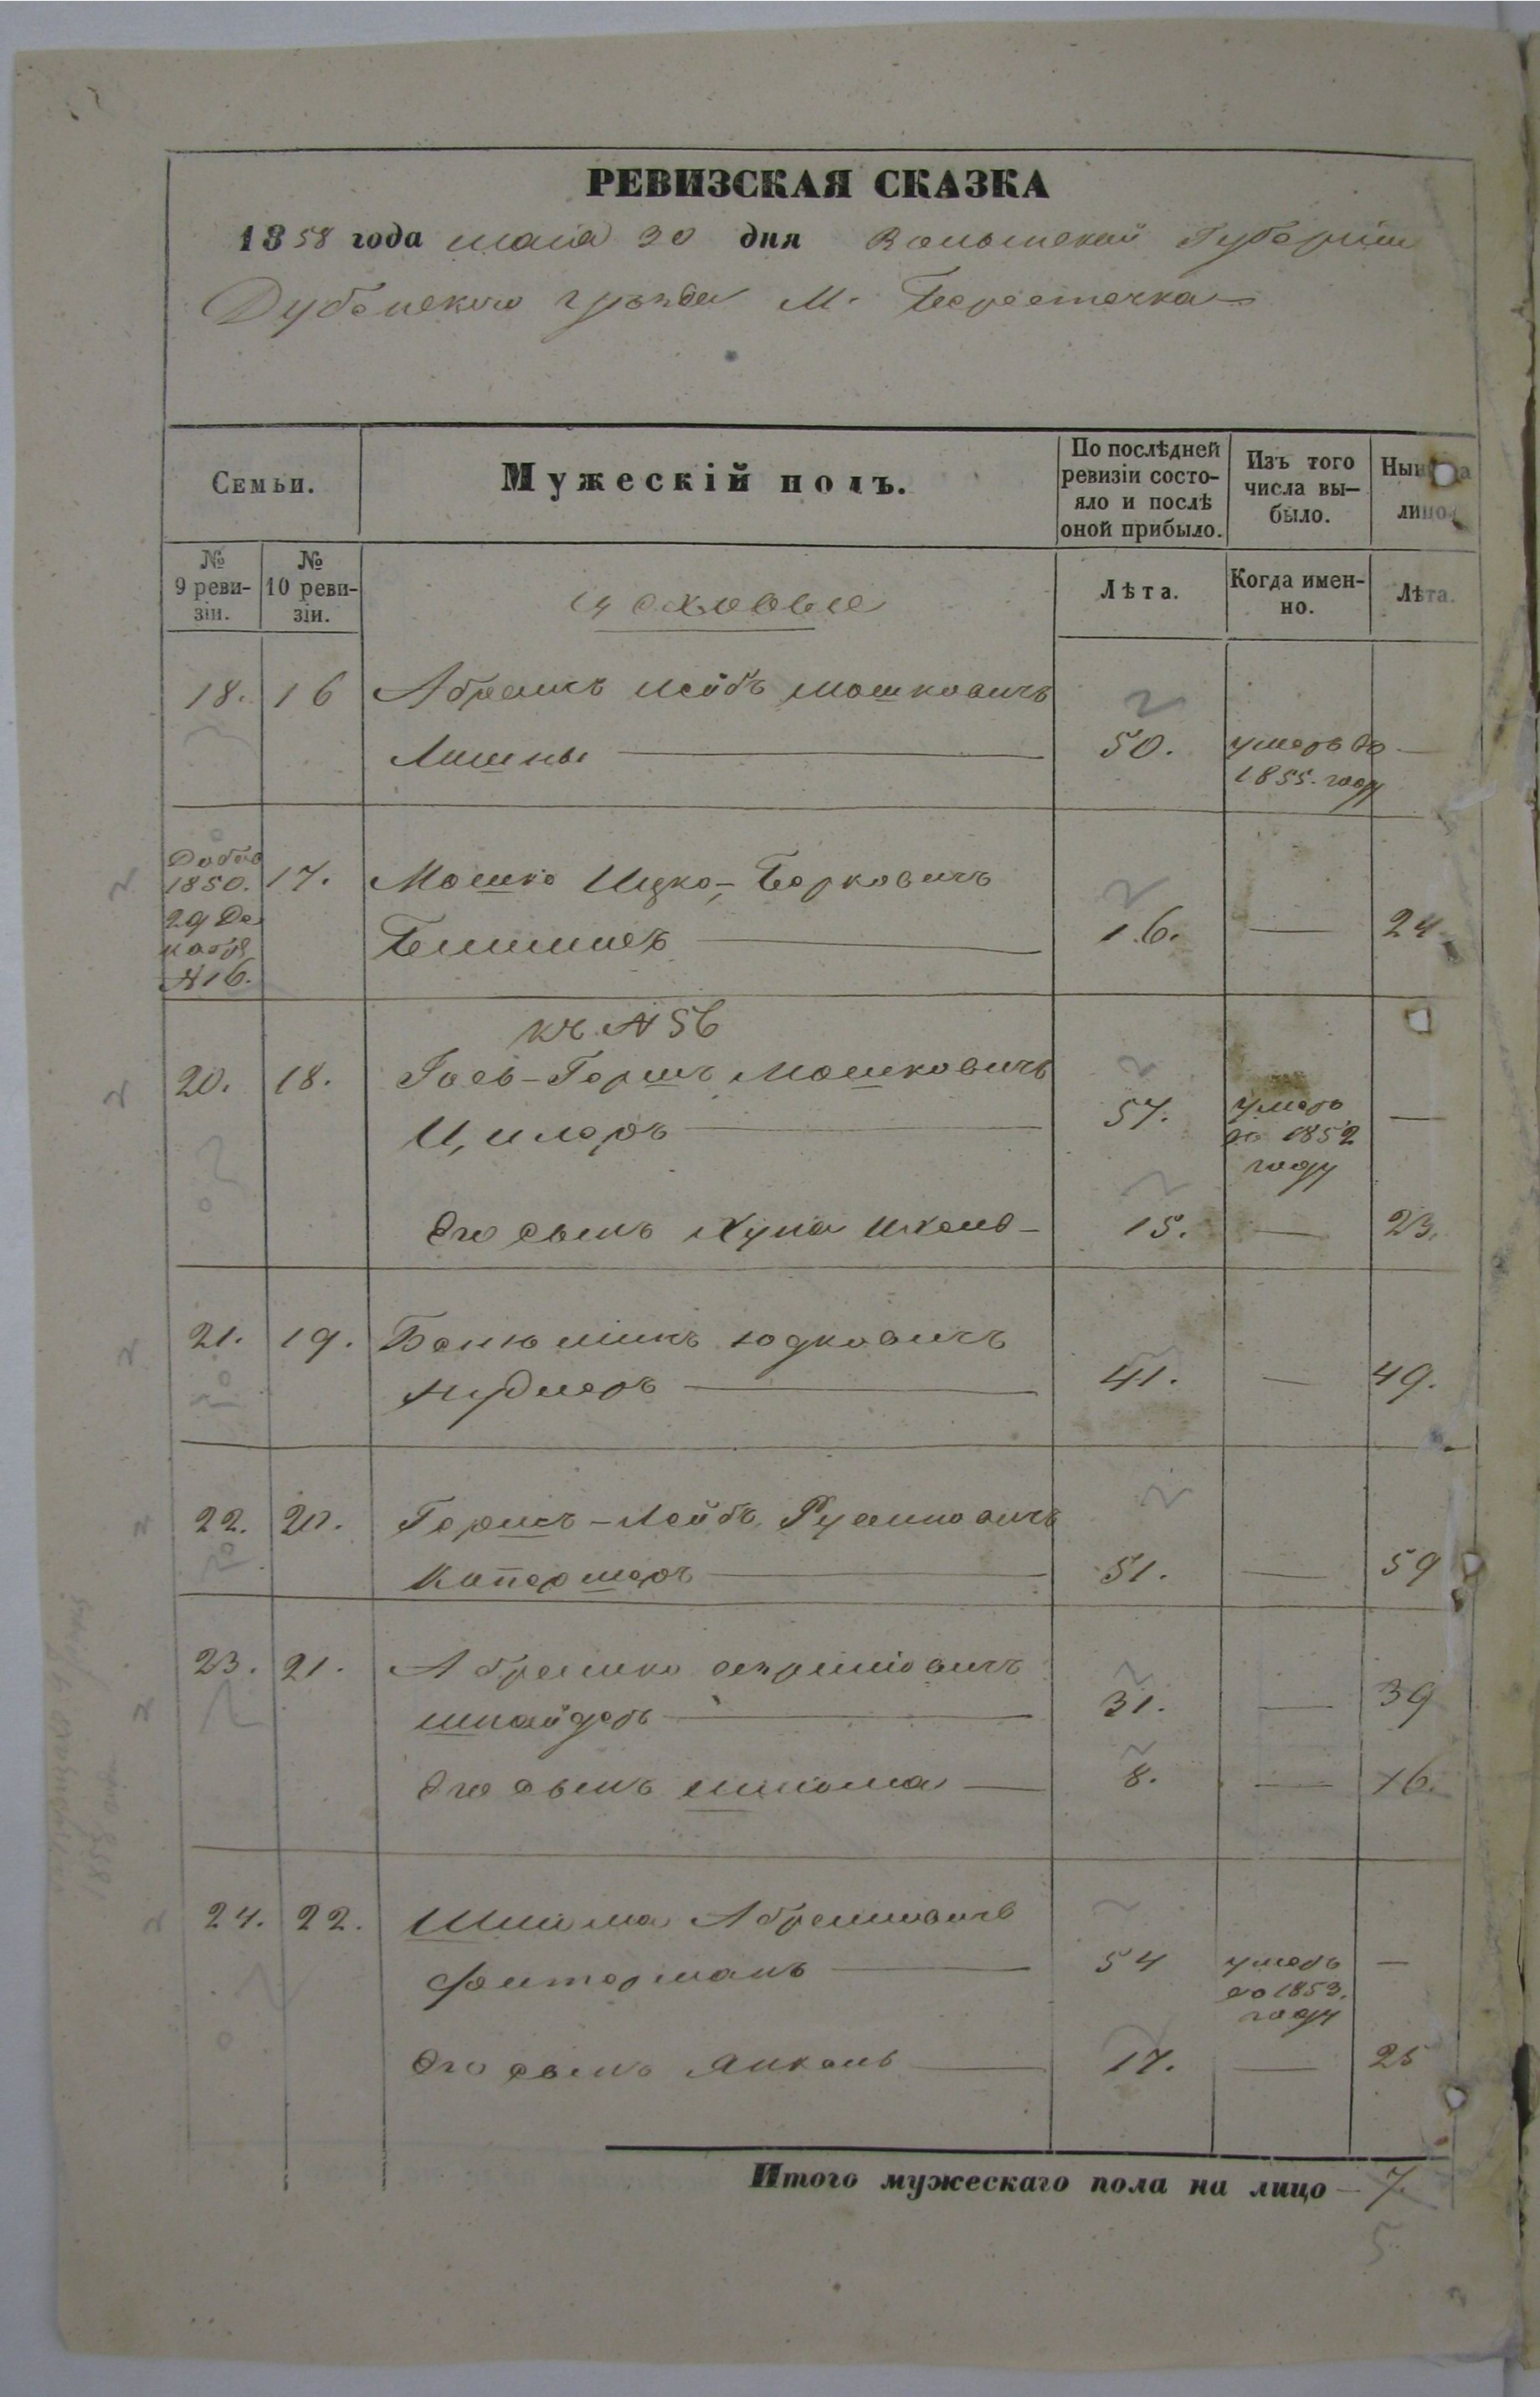 РЕВИЗСКАЯ СКАЗКА
1858 года маія 30 дня Волынской Губерніи
Дубенского уѣзда М. Берестечка
Семьи.
Мужескій полъ.
По послѣдней ревизіи состо-
яло и послѣ
оной прибыло.
Изъ того
числа вы-
было.
лицо
№
9 реви-
зіи.
№
10 реви-
зіи.
цеховые
Лѣта.
Когда имен-
но.
Лѣта.
18. 16 Абрамъ Лейбъ Мошковичъ
50. умеръ въ —
1855. году
Добав
1850. 17. Мошко Ицко-Берковичъ
29 Де
16. — 24
кабря
№ 16.
къ № 56
20. 18. Іось-Гершъ Мошковичъ
Цилеръ 57. умеръ —
въ 1852
году
Его сынъ Хуна 15. — 23.
21. 19. Беньюминъ Юдковичъ
41. — 49.
22. 20. Гершъ-Лейбъ
51. — 59
23. 21. Абрамко
Шнайдеръ 31. — 39
Его сынъ Шліома — 8. — 16.
24. 22. Шліома Абрамовичъ
54 умеръ —
въ 1853.
году
Его сынъ Янкель 17. — 25
Итого мужескаго пола на лицо — 7.
5.